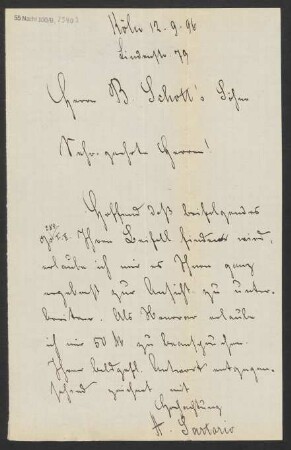 55 Nachl 100/B,
Köln 12.9.96
Lindenstr 79
Herrn B Schott's Söhne
Sehr geehrte Herren!
Hoffend daß beifolgendes
Ihren Beifall finden wird,
erlaube ich mir es Ihnen ganz
ergebenst zur Ansicht zu unter-
breiten. Als Honorar erlaube
ich mir 50 M zu beanspruchen.
Ihrer baldgefl. Antwort entgegen-
sehend zeichnet mit
Hochachtung
A. Sartorio